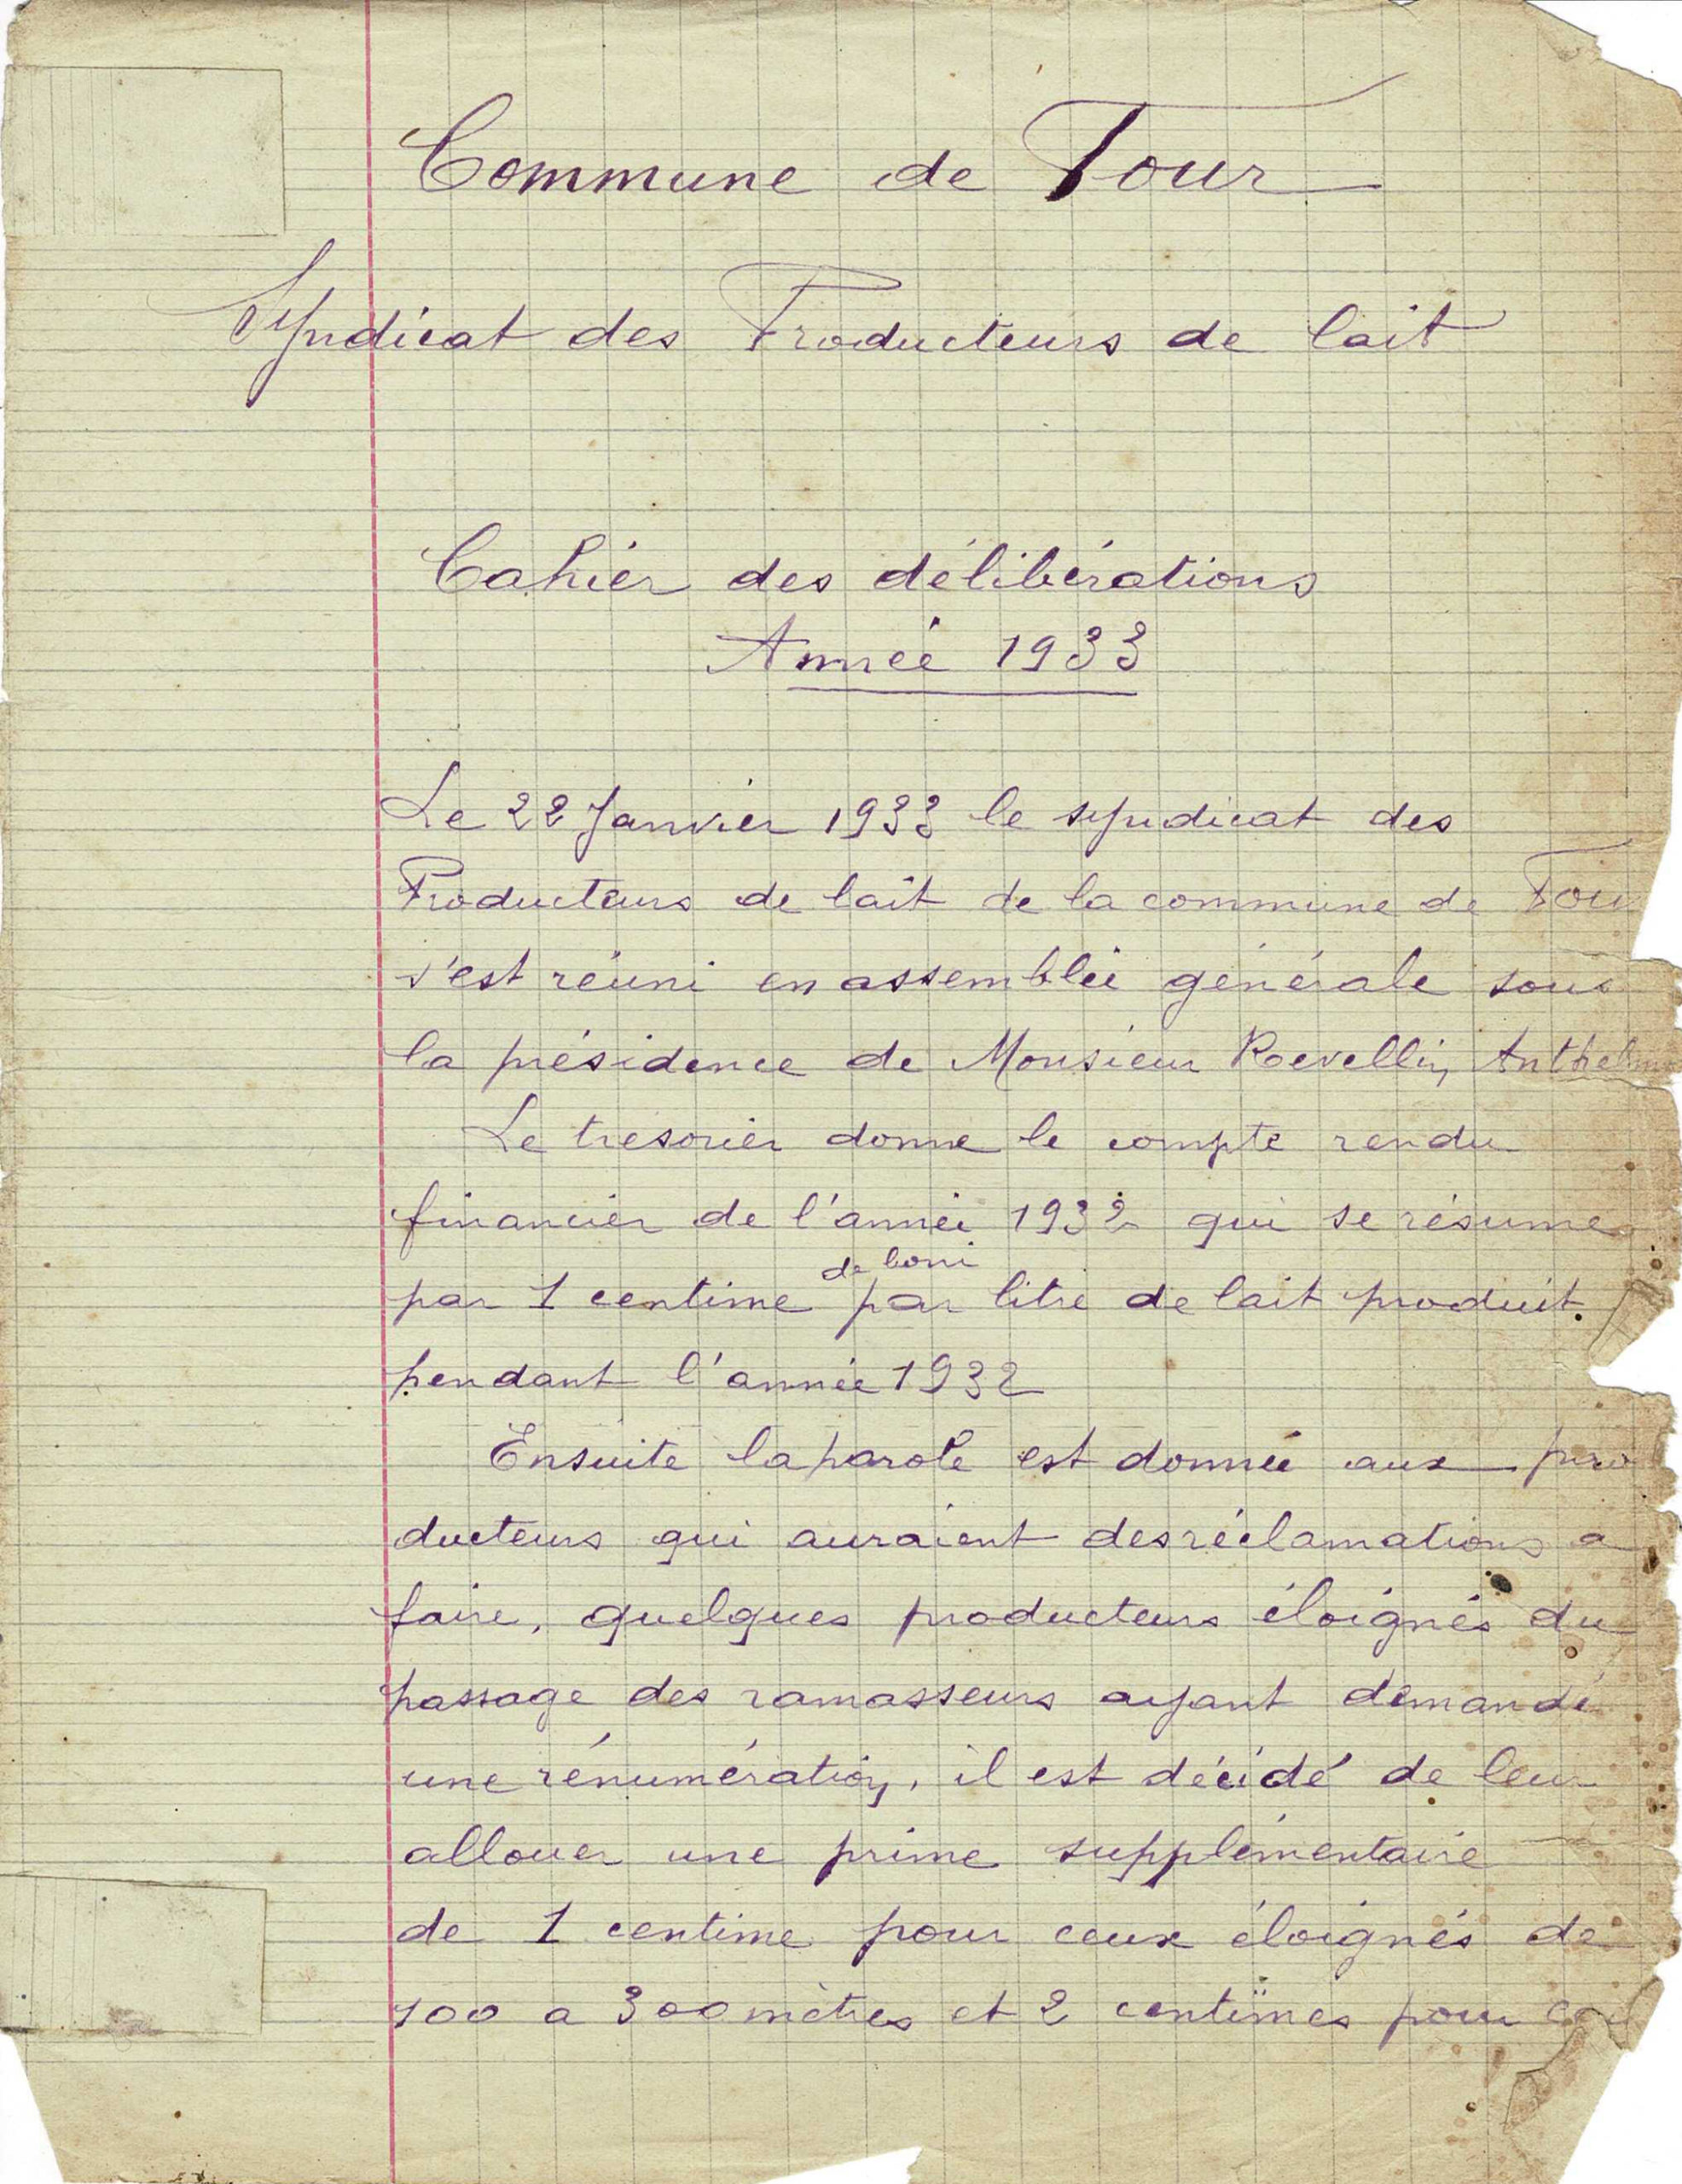 Commune de Tour
Syndicat des Producteurs de lait
Cahier des délibérations
Année 1933
Le 22 Janvier 1933 le syndicat des
Producteurs de lait de la commune de Tour
s'est réuni en assemblée générale sous
la présidence de Monsieur Revellin Anthelme
Le tresorier donne le compte rendu
financier de l'année 1932 qui se résume
de boni
par 1 centime par litre de lait produit
pendant l'année 1932
Ensuite la parole est donnée aux pro
ducteurs qui auraient des réclamations a
faire, quelques producteurs éloignés du
passage des ramasseurs ayant demandé
une rénumération, il est décidé de leur
allouer une prime supplémentaire
de 1 centime pour ceux éloignés de
100 a 300 mètres et 2 centimes pour